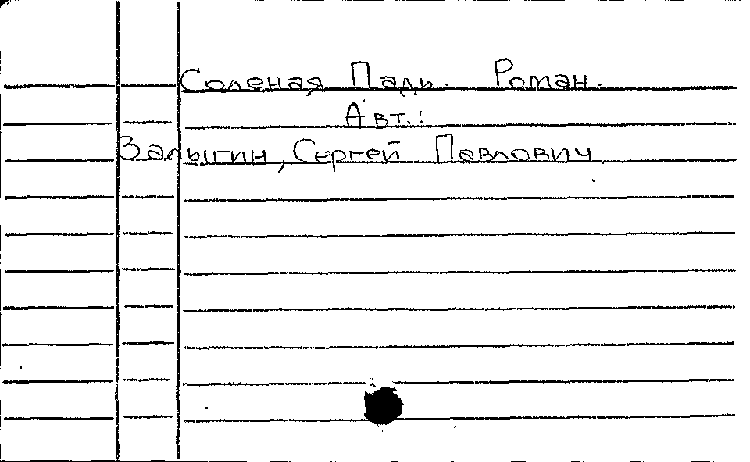 Соленая Падь. Роман.
Авт.:
Залыгин, Сергей Павлович